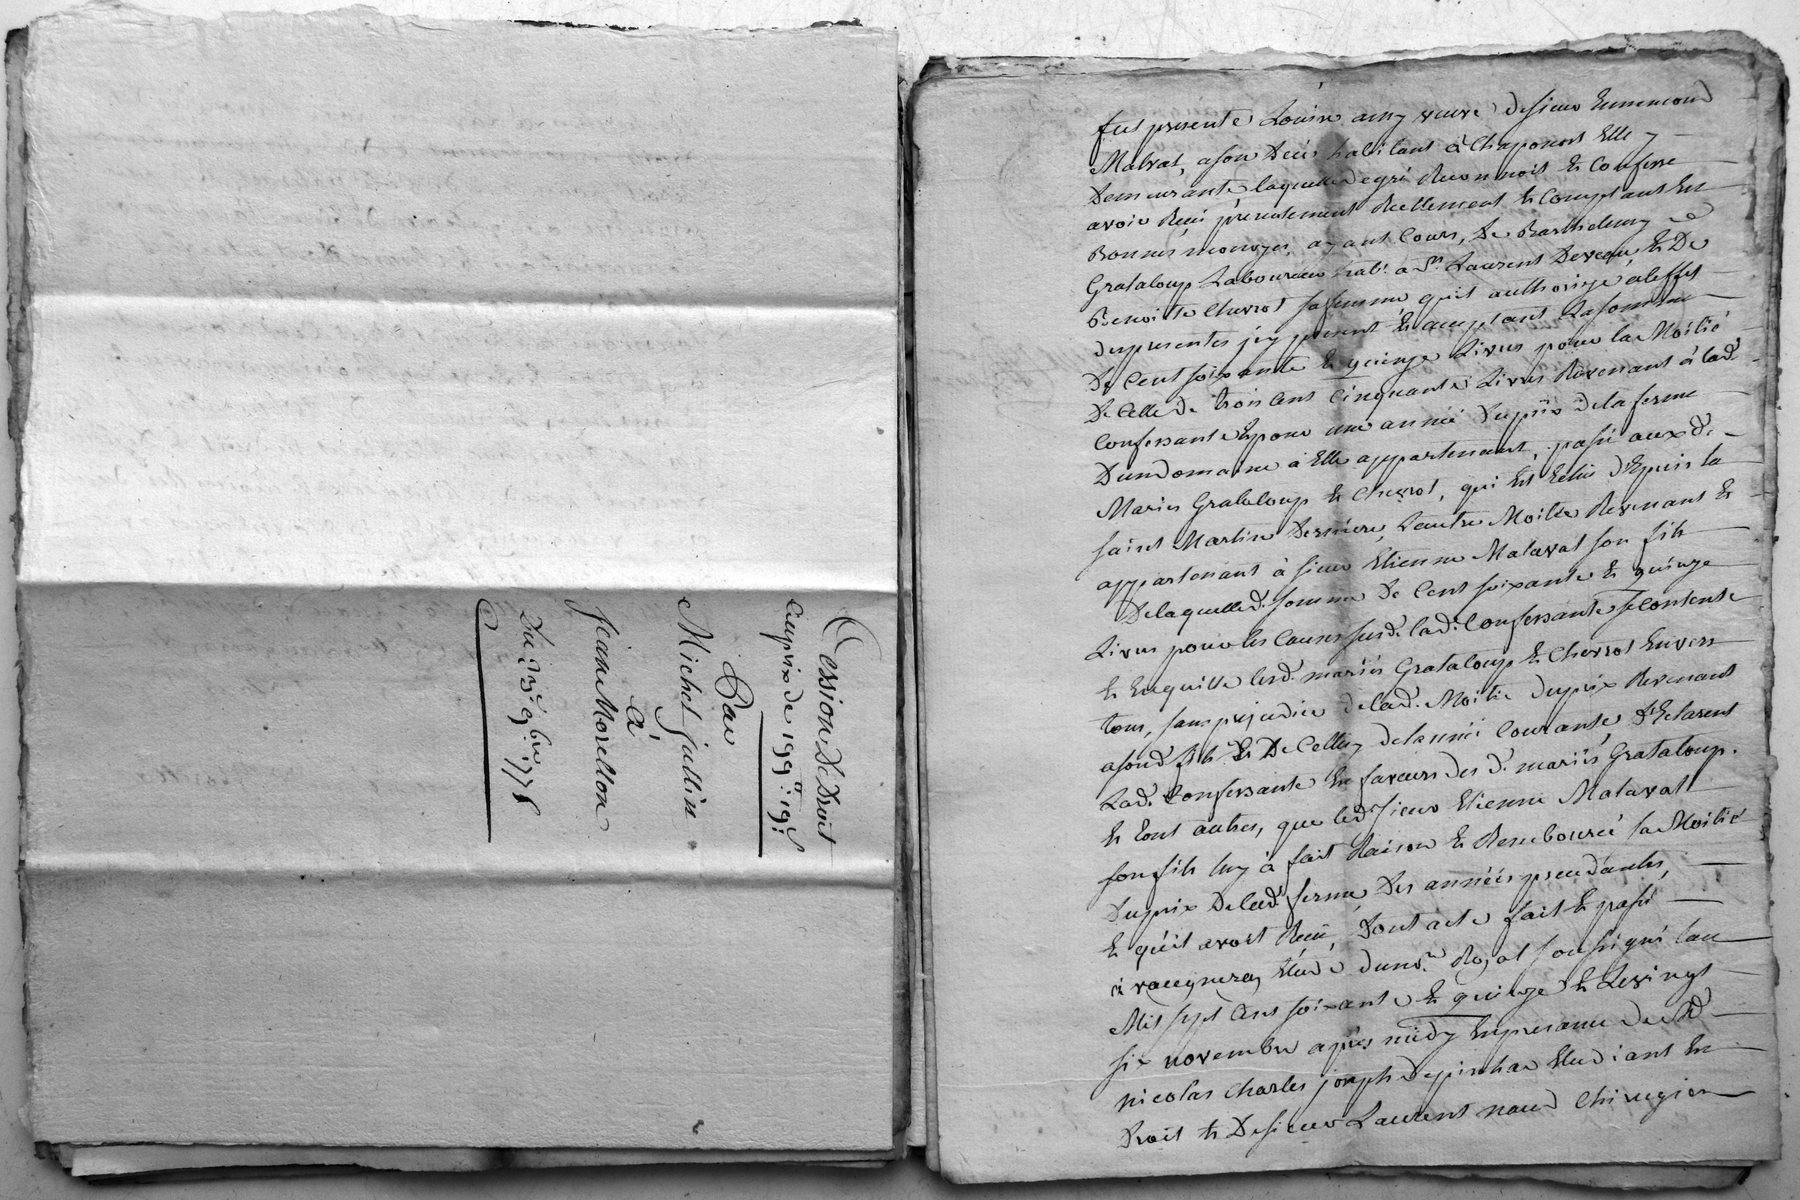 Cession de droit
au prix de 199ᵗᵗ: 19ˢ:
Par
Michel Jullin
à
Jean Morellon
Du 23ᵉ 9bre: 1775
fut presente Louise amy veuve de sieur Ennemond
Malval, a son Deces habitant à Chaponost Elle y
Demeurante laquelle de gré Reconnoit Et Confesse
avoir Reçu présentement Reellement Et Comptant En
Bonnes monoyes, ayant Cours, De Barthelemy
Grataloup Laboureur habt. a St. Laurent Devaux, Et De
Benoite Chevrot sa femme quil authorize a leffet
des presentes icy present Et acceptant La somme
De Cent soixante Et quinze Livres pour la Moitié
De Celle De trois Cent Cinquante Livres Revenant à lad.
Confessante Et pour une année Du prix de la ferme
D'un domaine à Elle appartenant, passée aux d.
Mariés Grataloup Et Chevrot, qui Est Echue Depuis la
saint Martin Derniere, L'autre Moitié Revenant Et
appartenant à sieur Etienne Malaval son fils
De laquelle d. somme De Cent soixante Et quinze
Livres pour les Causes susd. lad. Confessante se Contente
Et En quitte lesd. mariés Grataloup Et Chevrot Envers
tous, sans prejudice de lad. Moitié du prix Revenant
a son d. fils Et De Celluy de l'année Courante, Declarent
Lad. Confessante En faveurs des d. mariés Grataloup.
Et tout autres, que led. sieur Etienne Malaval
son fils luy à fait Raison Et Rembourcé sa Moitié
Du prix De lad. ferme, Des années precedentes,
Et qu'il avoit Reçu, Dont acte fait Et passé
à vaugneray Etude du no.re Royal soussigné l'an
Mil sept Cent soixante Et quinze Et Le vingt
six novembre après midy En presence de Sr.
nicolas Charles joseph Depinhac Etudiant En
Droit Et De sieur Laurent naud Chirugien